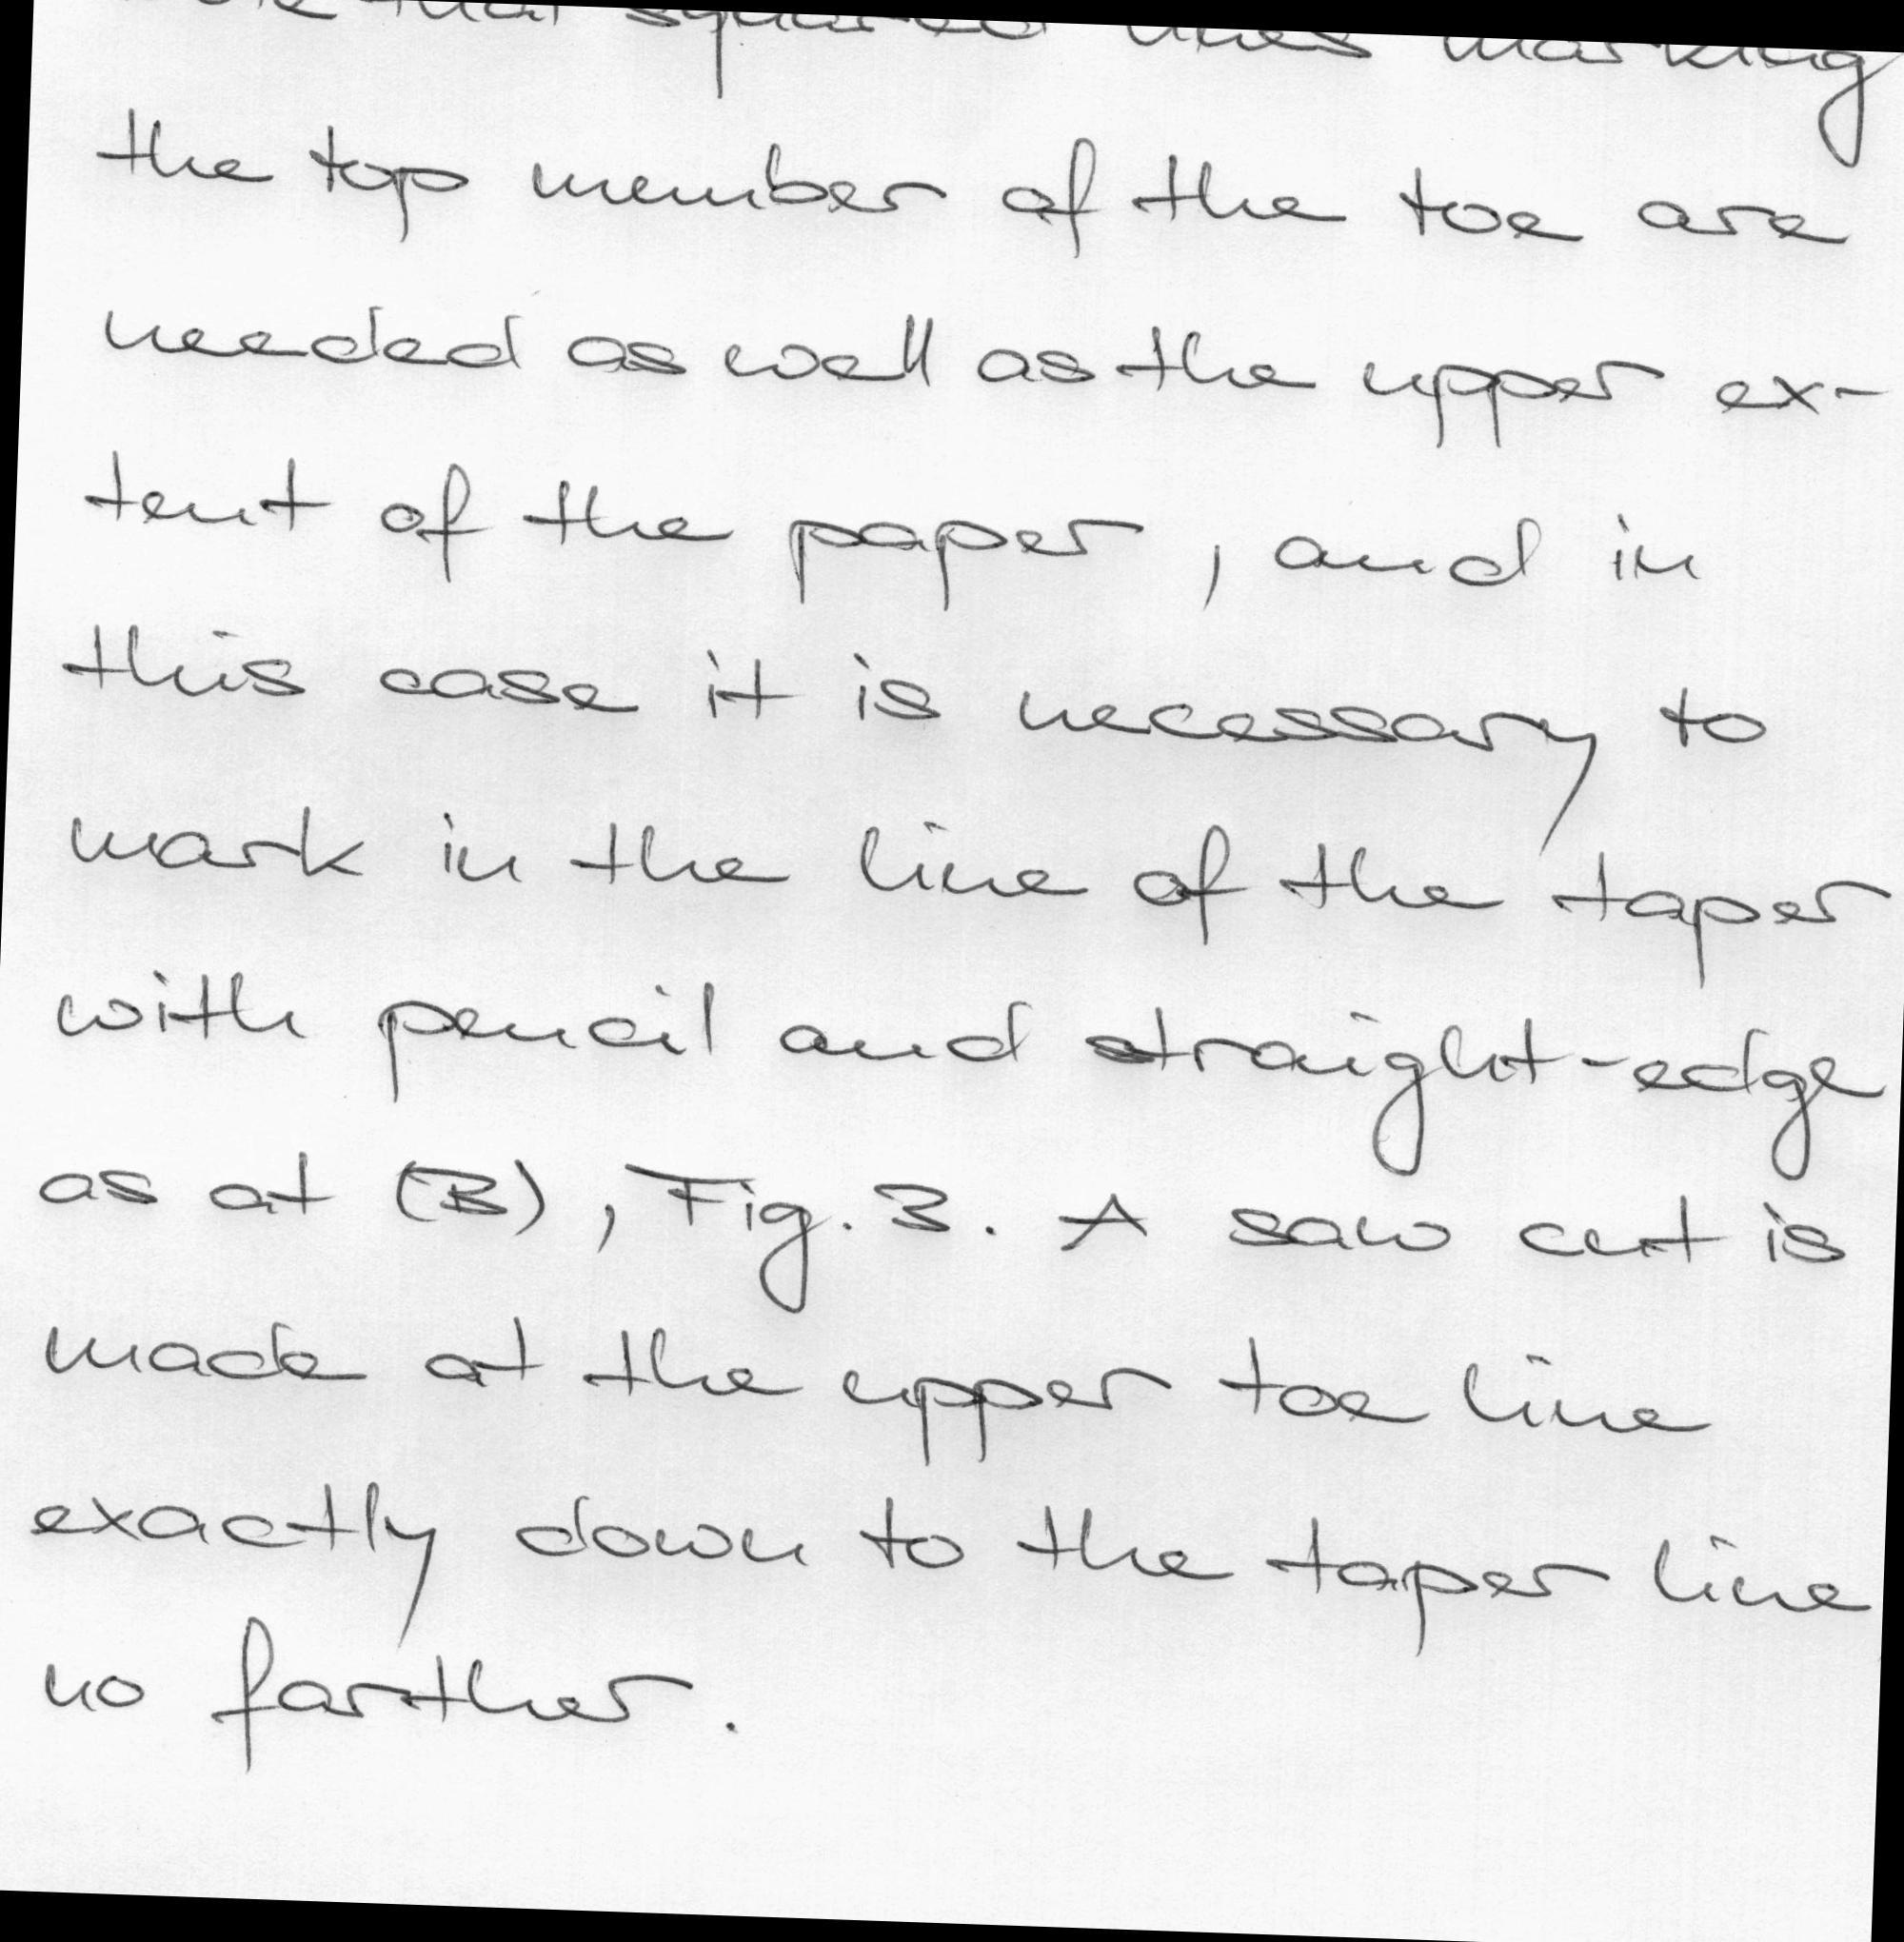 that squared lines marking
the top member of the toe are
needed as well as the upper ex-
tent of the paper, and in
this case it is necessary to
mark in the line of the taper
with pencil and straight-edge
as at (B), Fig. 3. A saw cut is
made at the upper toe line
exactly down to the taper line
no farther.